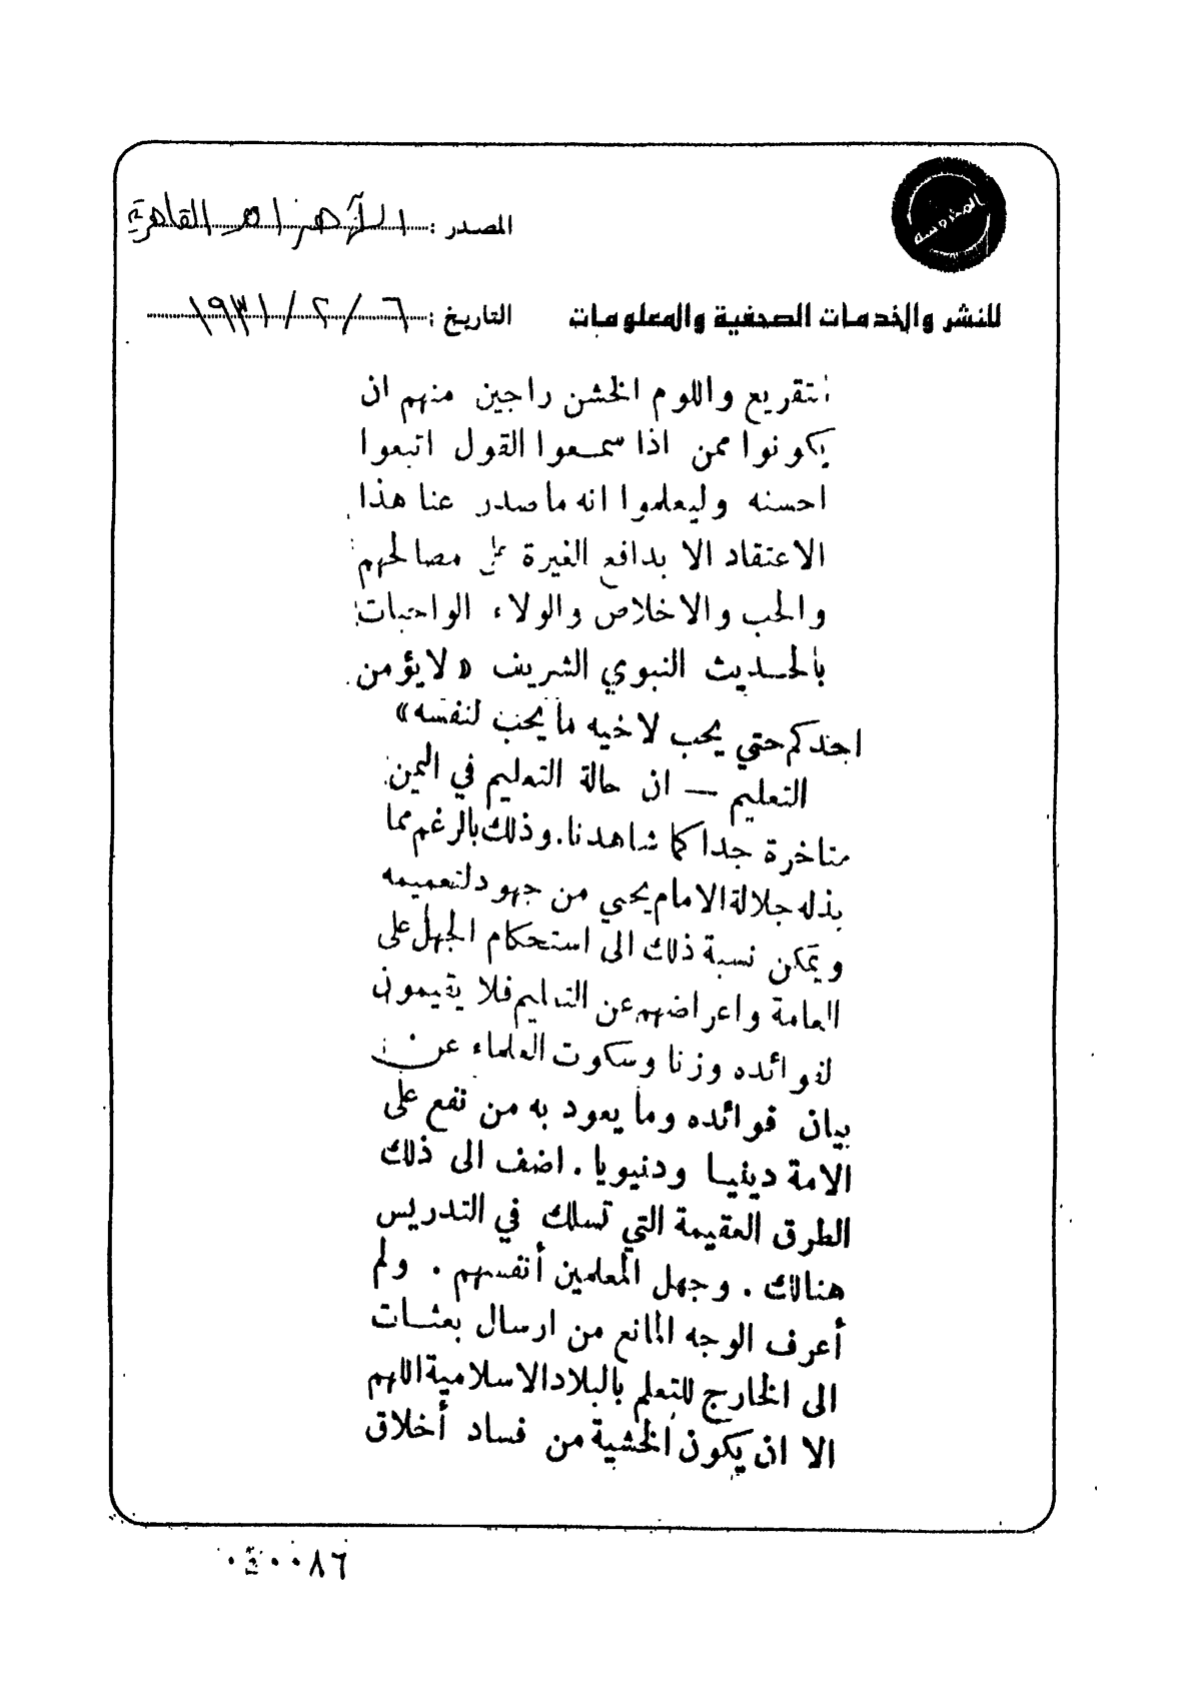 المحروسة
المصدر : الأهرام القاهرة
للنشر والخدمات الصحفية والمعلومات
التاريخ : ٦ / ٢ / ١٩٣١
التقريع واللوم الخشن راجين منهم ان
يكونوا ممن اذا سمعوا القول اتبعوا
احسنه وليعلموا انه ماصدر عنا هذا
الاعتقاد الا بدافع الغيرة على مصالحهم
والحب والاخلاص والولاء الواجبات
بالحديث النبوي الشريف « لايؤمن
احدكم حتي يحب لاخيه مايحب لنفسه »
التعليم — ان حالة التعليم في اليمن
متاخرة جدا كما شاهدنا . وذلك بالرغم مما
بذله جلالة الامام يحيي من جهود لتعميمه
ويمكن نسبة ذلك الى استحكام الجهل على
العامة واعراضهم عن التعليم فلا يقيمون
لفوائده وزنا وسكوت العلماء عن
بيان فوائده وما يعود به من نفع على
الامة دينيا ودنيويا . اضف الى ذلك
الطرق العقيمة التي تسلك في التدريس
هنالك . وجهل المعلمين أنفسهم . ولم
أعرف الوجه المانع من ارسال بعثات
الى الخارج للتعلم بالبلاد الاسلامية اللهم
الا ان يكون الخشية من فساد أخلاق